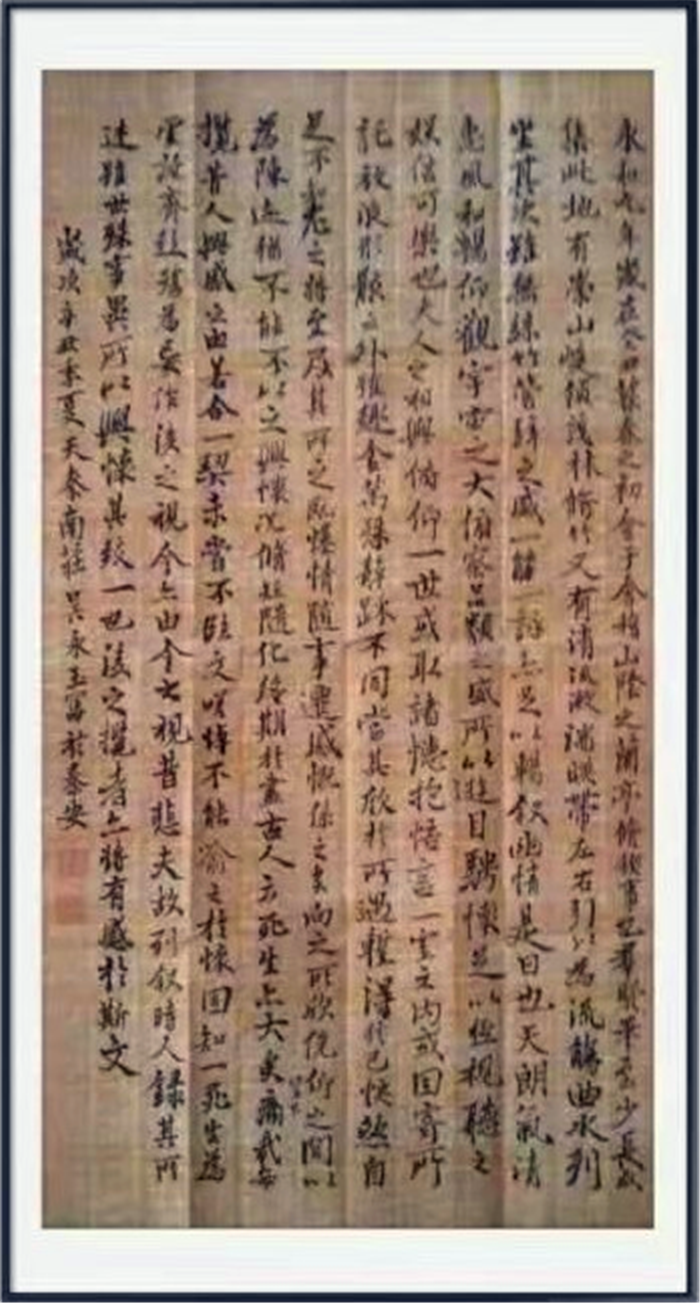 永和九年歲在癸丑暮春之初會于會稽山陰之蘭亭脩禊事也羣賢畢至少長咸
集此地有崇山峻領茂林脩竹又有清流激湍暎帶左右引以為流觴曲水列
坐其次雖無絲竹管絃之盛一觴一詠亦足以暢敘幽情是日也天朗氣清
惠風和暢仰觀宇宙之大俯察品類之盛所以遊目騁懷足以極視聽之
娛信可樂也夫人之相與俯仰一世或取諸懷抱悟言一室之內或因寄所
託放浪形骸之外雖趣舍萬殊靜躁不同當其欣於所遇暫得於己快然自
足不知老之將至及其所之既惓情隨事遷感慨係之矣向之所欣俛仰之間以
為陳迹猶不能不以之興懷況脩短隨化終期於盡古人云死生亦大矣豈不痛哉每
攬昔人興感之由若合一契未嘗不臨文嗟悼不能喻之於懷固知一死生為
虛誕齊彭殤為妄作後之視今亦由今之視昔悲夫故列敘時人錄其所
述雖世殊事異所以興懷其致一也後之攬者亦將有感於斯文
歲次辛丑季夏天秦南莊吳永玉寫於秦安